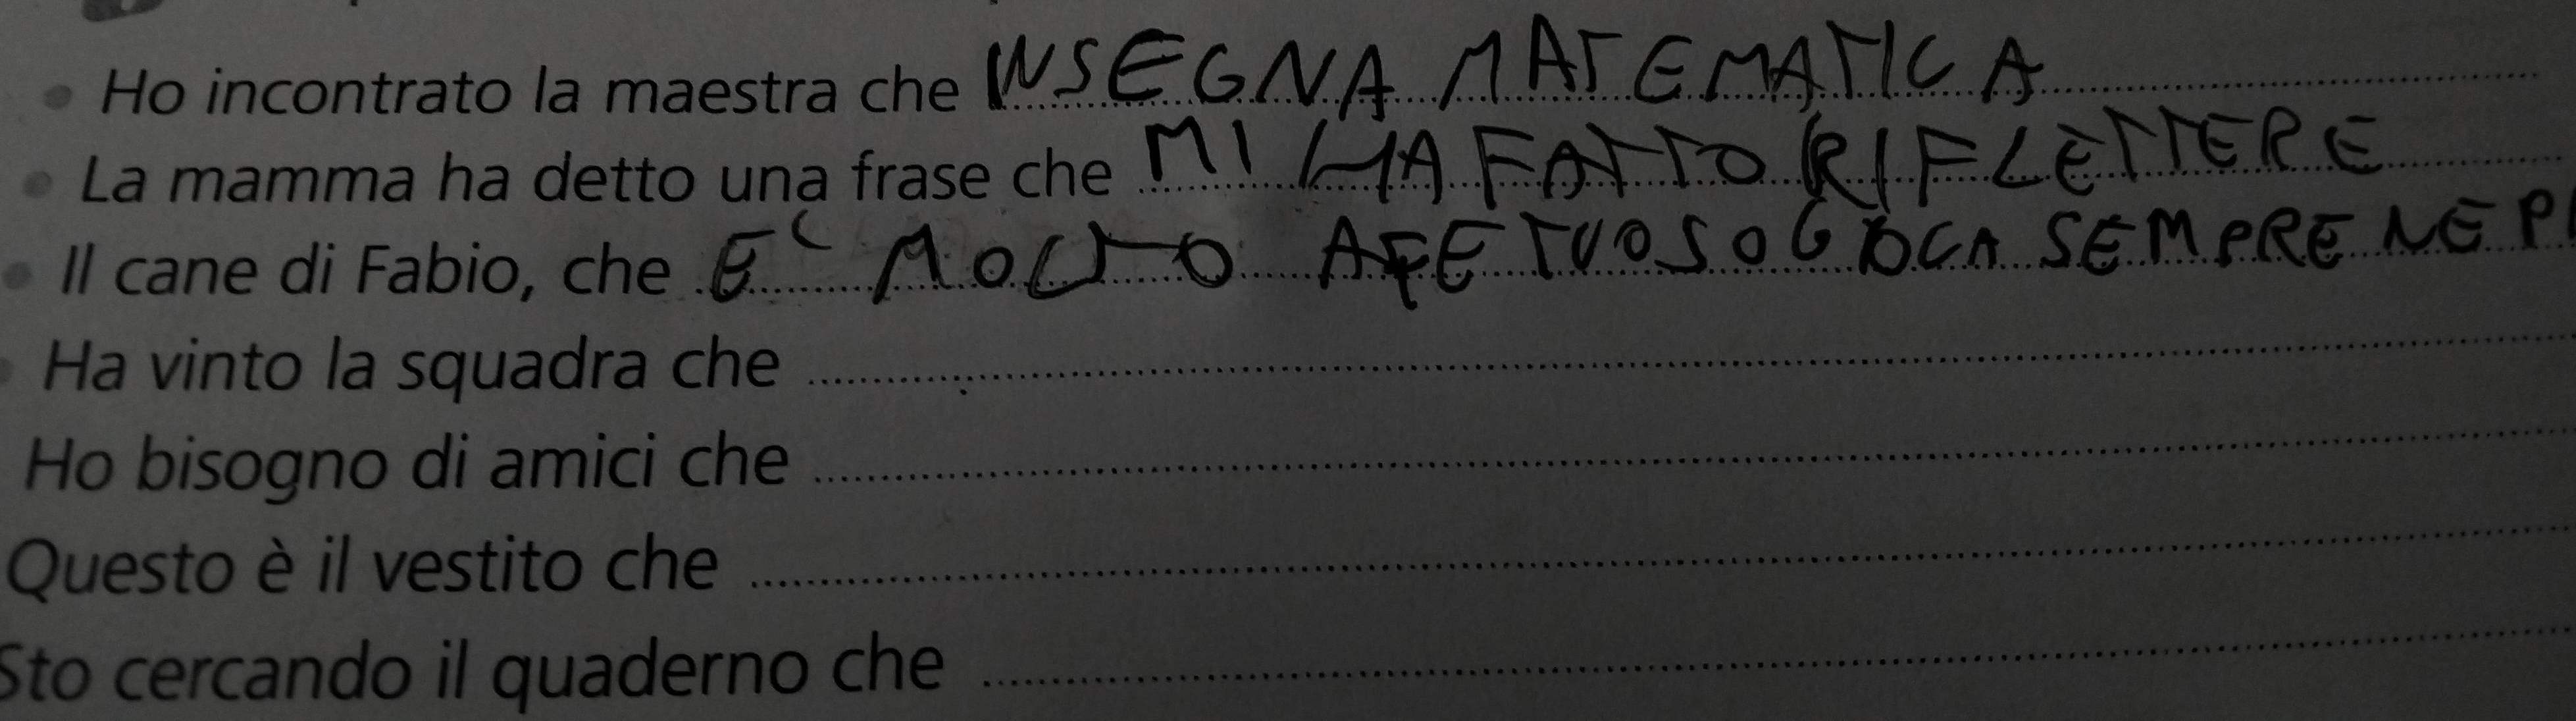 Ho incontrato la maestra che INSEGNA MATEMATICA
La mamma ha detto una frase che MI HA FATTO RIFLETTERE
Il cane di Fabio, che E' MOLTO AFETUOSO GIOCA SEMPRE NE
Ha vinto la squadra che
Ho bisogno di amici che
Questo è il vestito che
Sto cercando il quaderno che